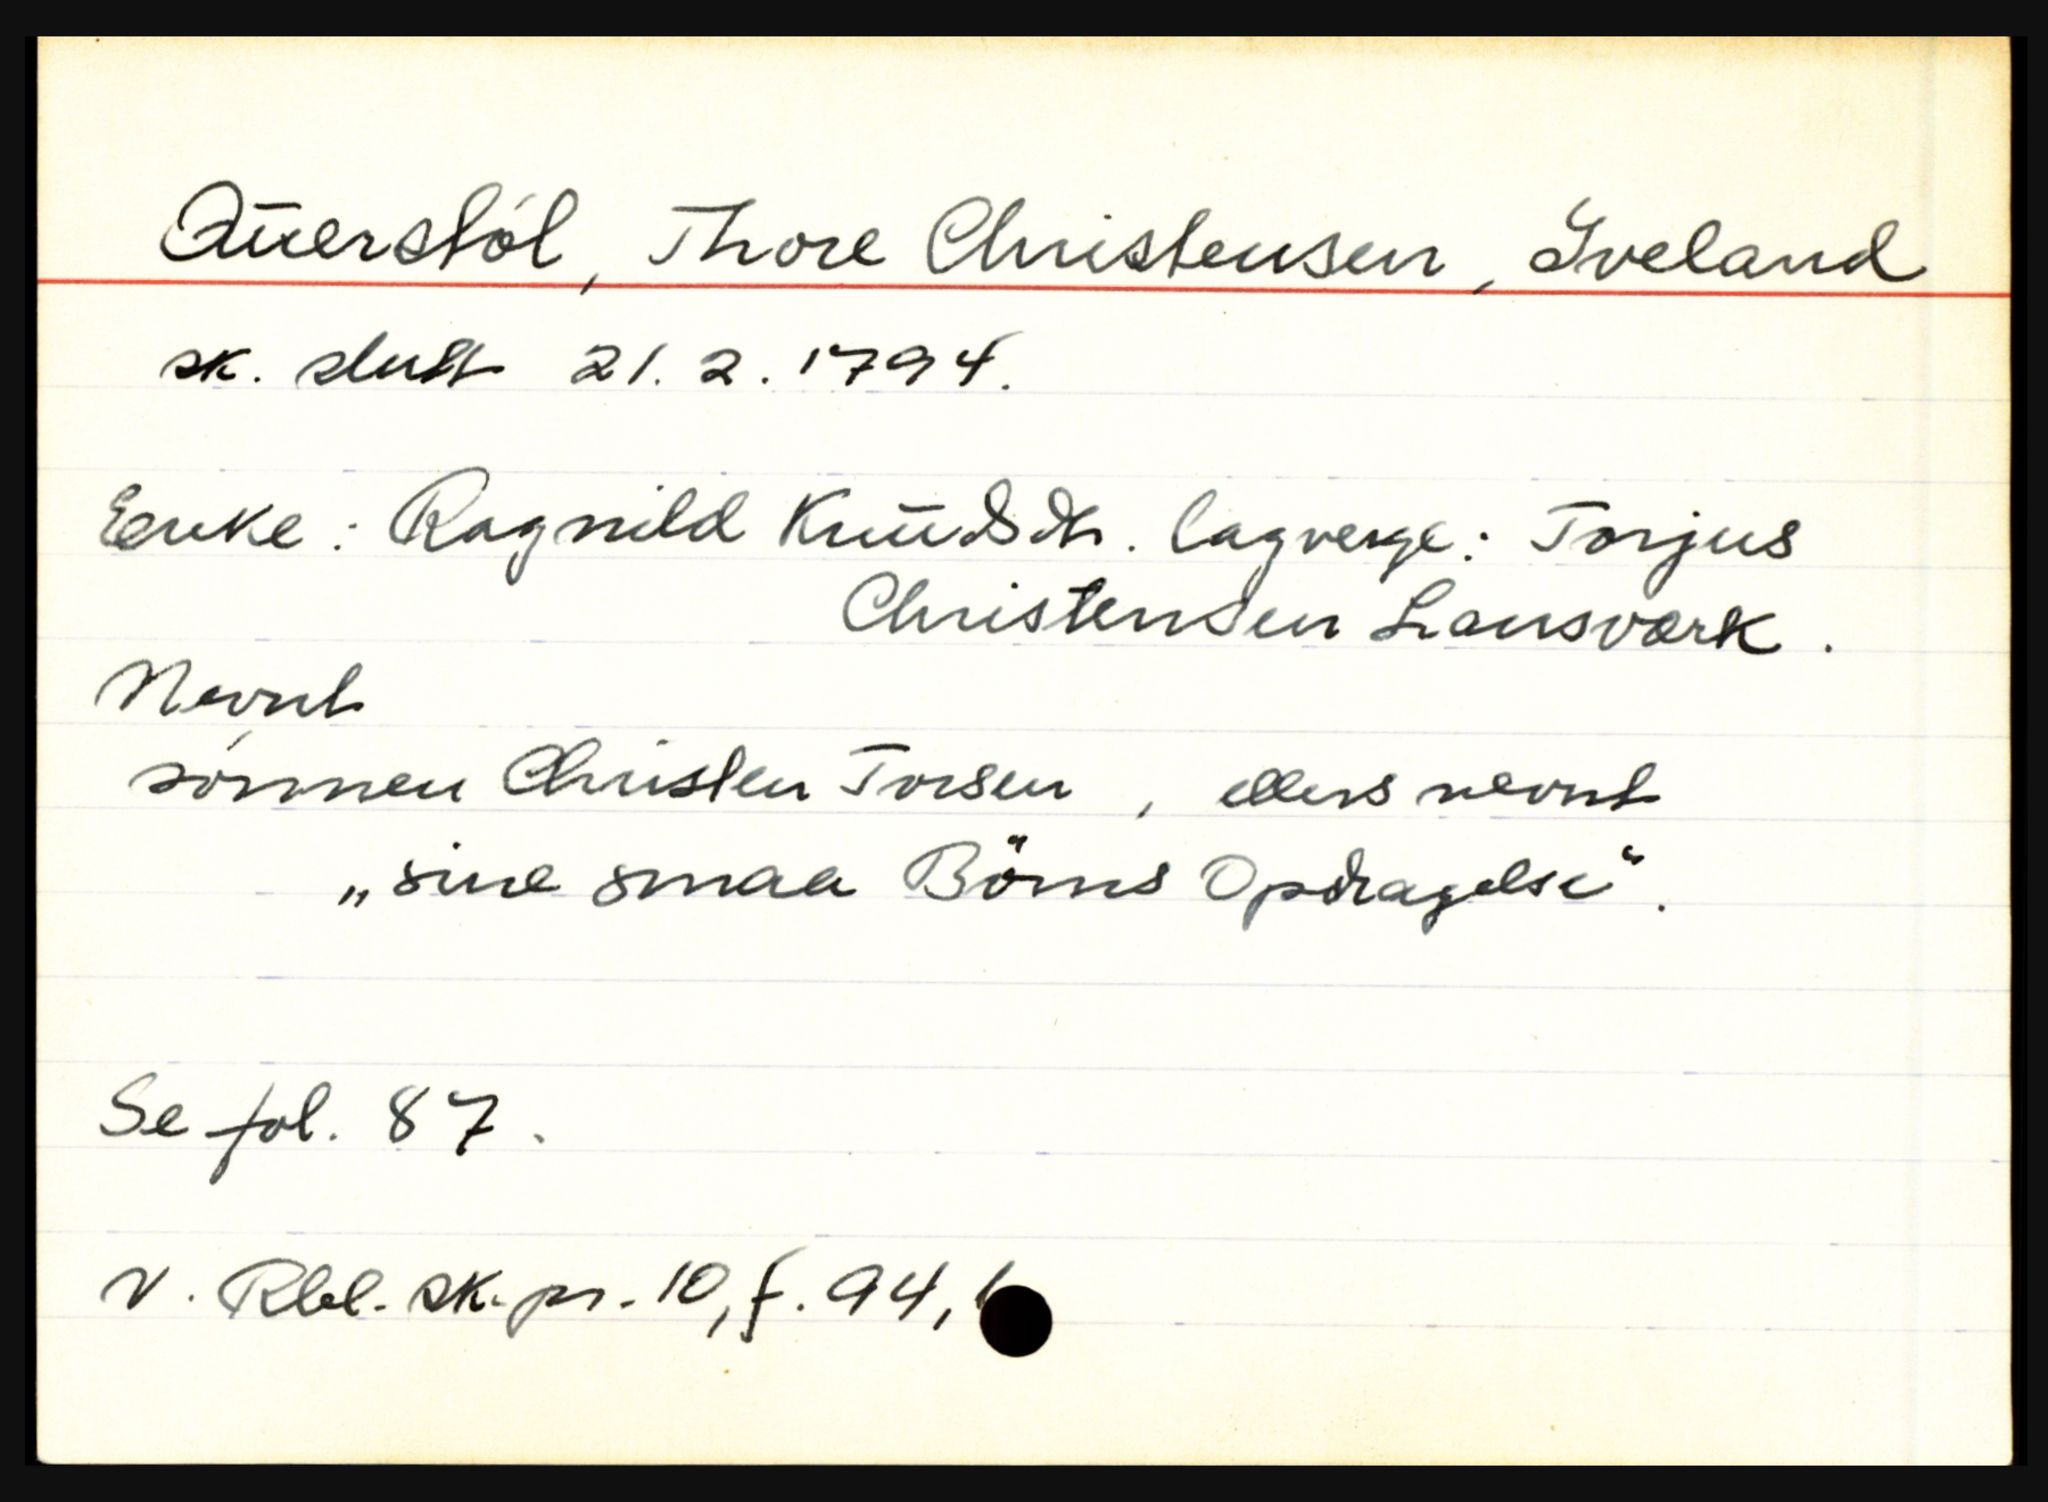 Aŭerstöl, Thore Christensen, Iveland
sk. slutt 21.2.1794.
Encke: Ragnild Knŭdsdtr. lagverge: Torjus
Christensen Landsværk.
Nevnt
sönnen Christen Torsen, ellers nevnt
„sine smaa Börns Opdragelse".
Se fol. 87.
V. Rbl. sk. pr. 10, f. 94,